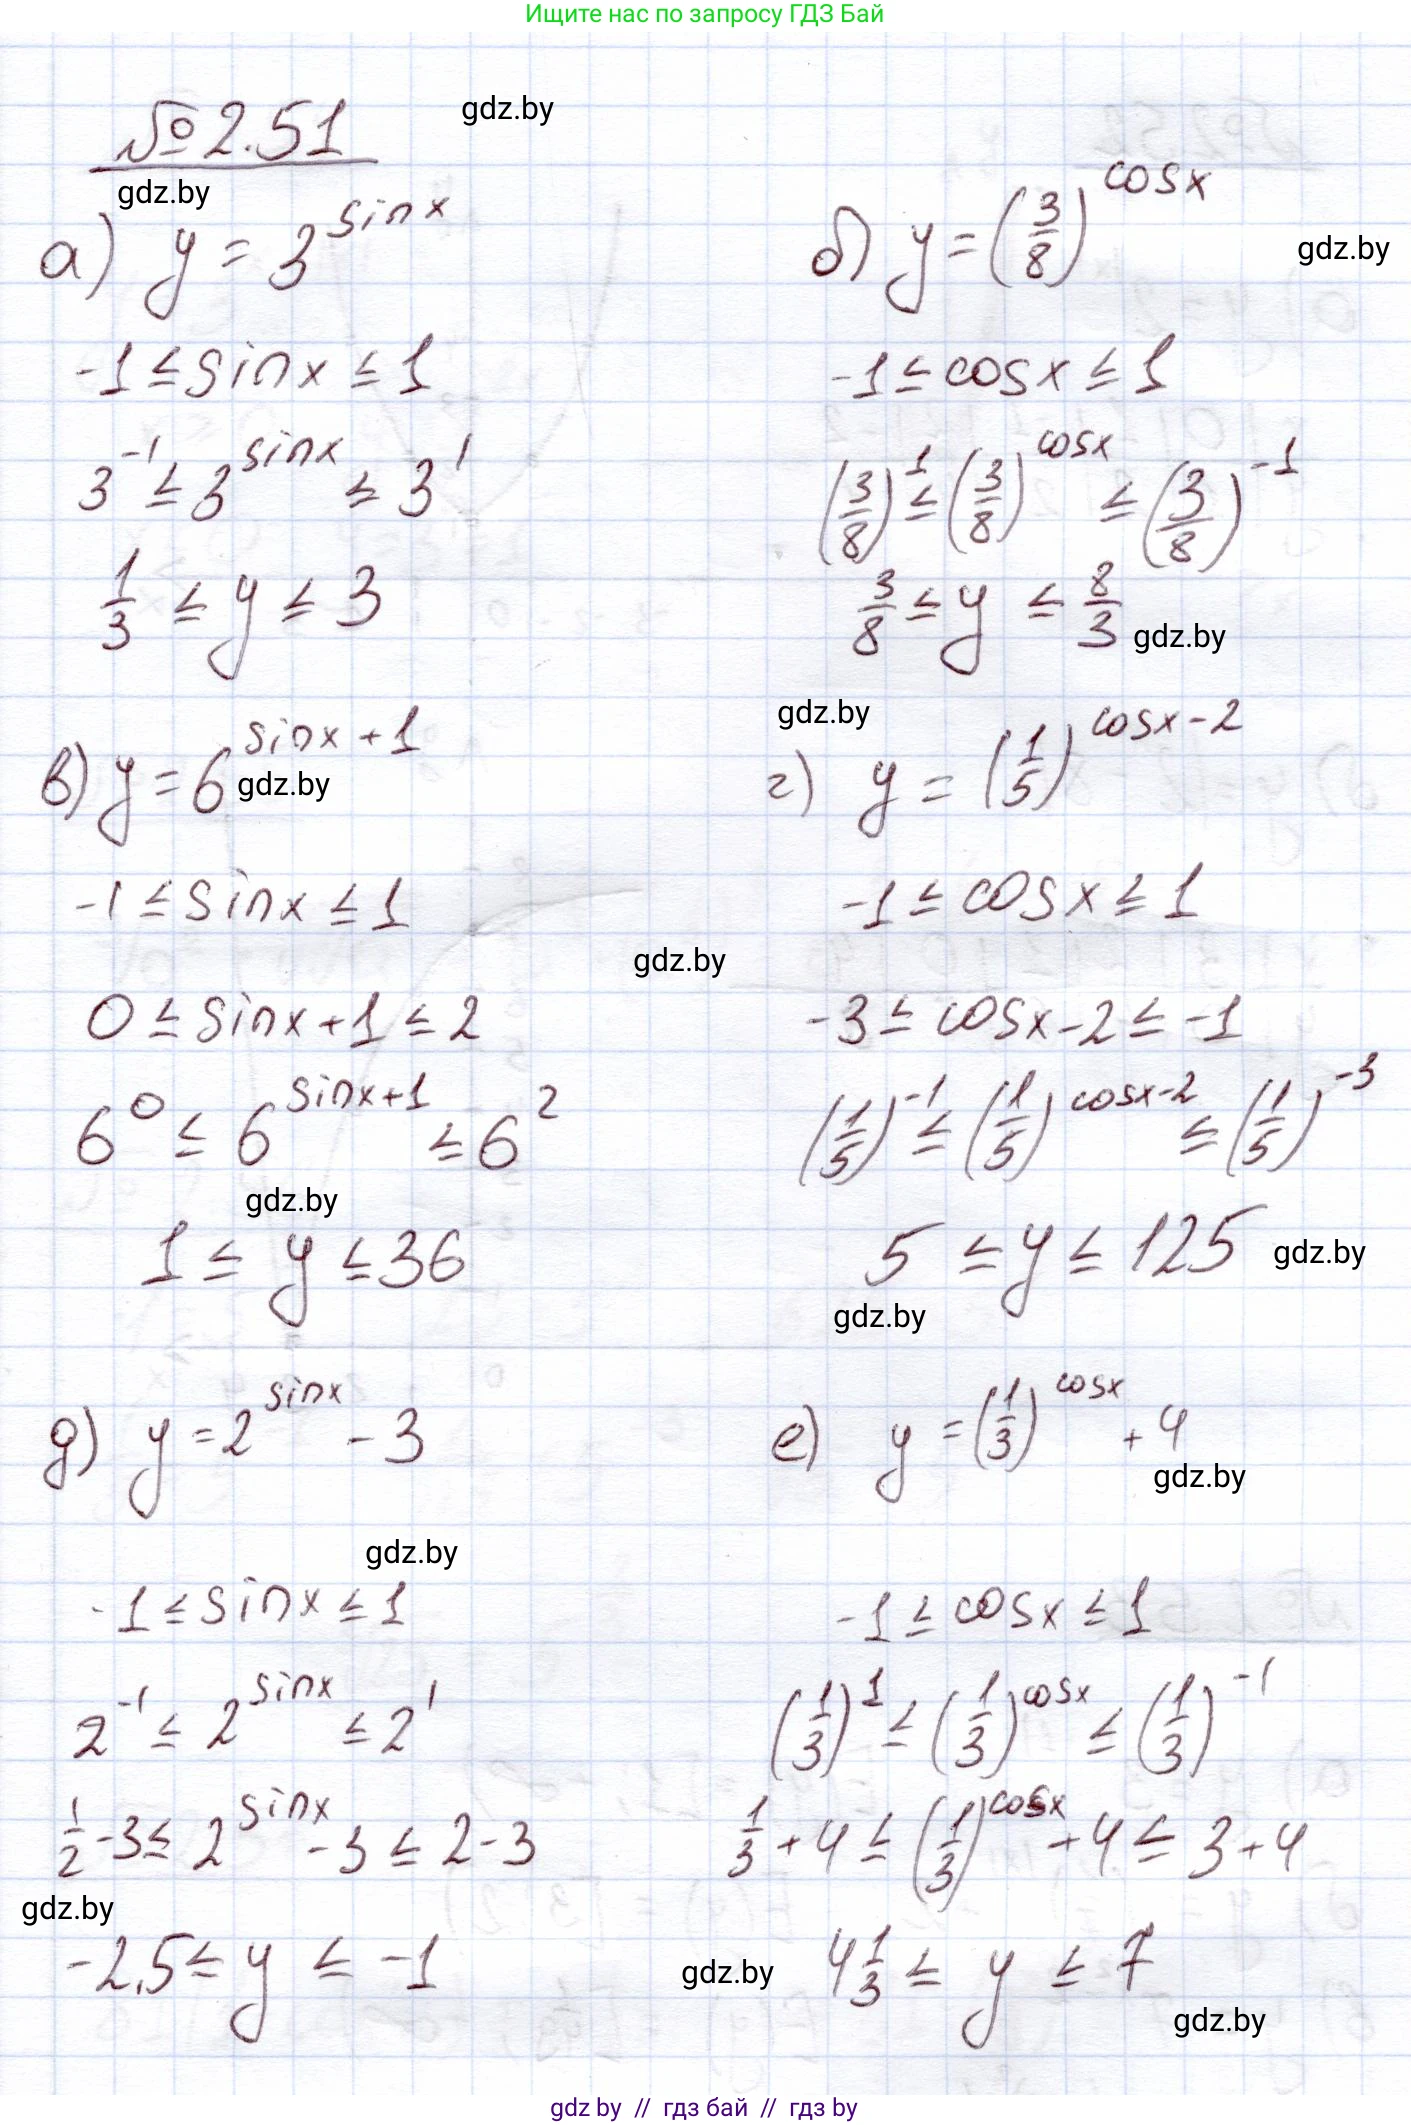 Ищите нас по запросу ГДЗ Бай
№ 2.51
gdz.by
gdz.by
а) y = 3^sinx
-1 ≤ sinx ≤ 1
3^-1 ≤ 3^sinx ≤ 3^1
1/3 ≤ y ≤ 3
б) y = (3/8)^cosx
gdz.by
-1 ≤ cosx ≤ 1
(3/8)^1 ≤ (3/8)^cosx ≤ (3/8)^-1
3/8 ≤ y ≤ 8/3
gdz.by
gdz.by
в) y = 6^sinx+1
gdz.by
-1 ≤ sinx ≤ 1
0 ≤ sinx+1 ≤ 2
6^0 ≤ 6^sinx+1 ≤ 6^2
gdz.by
1 ≤ y ≤ 36
г) y = (1/5)^cosx-2
-1 ≤ cosx ≤ 1
gdz.by
-3 ≤ cosx-2 ≤ -1
(1/5)^-1 ≤ (1/5)^cosx-2 ≤ (1/5)^-3
5 ≤ y ≤ 125
gdz.by
gdz.by
д) y = 2^sinx - 3
gdz.by
-1 ≤ sinx ≤ 1
2^-1 ≤ 2^sinx ≤ 2^1
1/2 -3 ≤ 2^sinx - 3 ≤ 2-3
gdz.by
-2,5 ≤ y ≤ -1
е) y = (1/3)^cosx + 4
gdz.by
-1 ≤ cosx ≤ 1
(1/3)^1 ≤ (1/3)^cosx ≤ (1/3)^-1
1/3 + 4 ≤ (1/3)^cosx + 4 ≤ 3+4
4 1/3 ≤ y ≤ 7
gdz.by
gdz.by
gdz by // гдз бай // гдз by